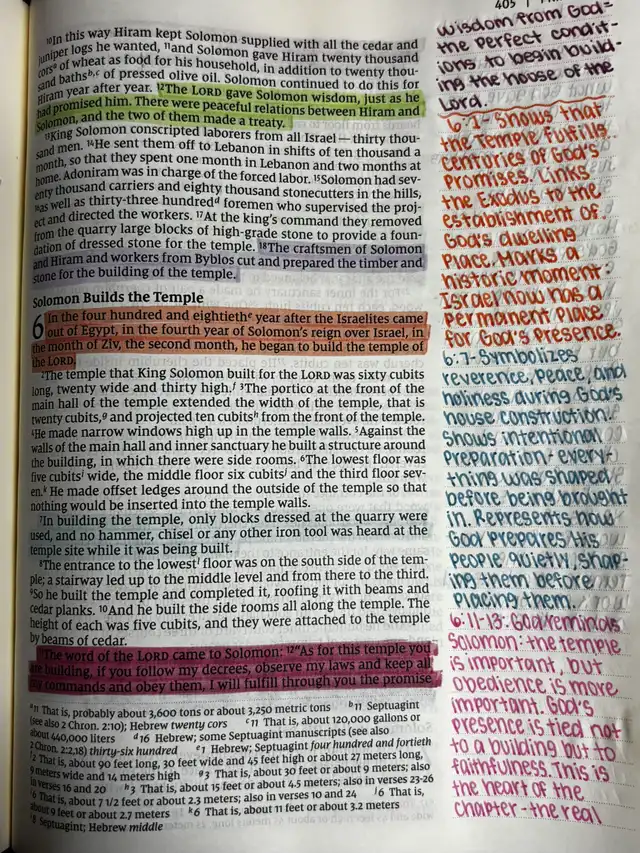 405
¹⁰In this way Hiram kept Solomon supplied with all the cedar and
juniper logs he wanted, ¹¹and Solomon gave Hiram twenty thousand
corsᵃ of wheat as food for his household, in addition to twenty thou-
sand bathsᵇ,ᶜ of pressed olive oil. Solomon continued to do this for
Hiram year after year. ¹²The LORD gave Solomon wisdom, just as he
had promised him. There were peaceful relations between Hiram and
Solomon, and the two of them made a treaty.
¹³King Solomon conscripted laborers from all Israel — thirty thou-
sand men. ¹⁴He sent them off to Lebanon in shifts of ten thousand a
month, so that they spent one month in Lebanon and two months at
home. Adoniram was in charge of the forced labor. ¹⁵Solomon had sev-
enty thousand carriers and eighty thousand stonecutters in the hills,
¹⁶as well as thirty-three hundredᵈ foremen who supervised the proj-
ect and directed the workers. ¹⁷At the king's command they removed
from the quarry large blocks of high-grade stone to provide a foun-
dation of dressed stone for the temple. ¹⁸The craftsmen of Solomon
and Hiram and workers from Byblos cut and prepared the timber and
stone for the building of the temple.
Solomon Builds the Temple
6 In the four hundred and eightiethᵉ year after the Israelites came
out of Egypt, in the fourth year of Solomon's reign over Israel, in
the month of Ziv, the second month, he began to build the temple of
the LORD.
²The temple that King Solomon built for the LORD was sixty cubits
long, twenty wide and thirty high.ᶠ ³The portico at the front of the
main hall of the temple extended the width of the temple, that is
twenty cubits,ᵍ and projected ten cubitsʰ from the front of the temple.
⁴He made narrow windows high up in the temple walls. ⁵Against the
walls of the main hall and inner sanctuary he built a structure around
the building, in which there were side rooms. ⁶The lowest floor was
five cubitsⁱ wide, the middle floor six cubitsʲ and the third floor sev-
en.ᵏ He made offset ledges around the outside of the temple so that
nothing would be inserted into the temple walls.
⁷In building the temple, only blocks dressed at the quarry were
used, and no hammer, chisel or any other iron tool was heard at the
temple site while it was being built.
⁸The entrance to the lowestˡ floor was on the south side of the tem-
ple; a stairway led up to the middle level and from there to the third.
⁹So he built the temple and completed it, roofing it with beams and
cedar planks. ¹⁰And he built the side rooms all along the temple. The
height of each was five cubits, and they were attached to the temple
by beams of cedar.
¹¹The word of the LORD came to Solomon: ¹²"As for this temple you
are building, if you follow my decrees, observe my laws and keep all
my commands and obey them, I will fulfill through you the promise
ᵃ11 That is, probably about 3,600 tons or about 3,250 metric tons ᵇ11 Septuagint
(see also 2 Chron. 2:10); Hebrew twenty cors ᶜ11 That is, about 120,000 gallons or
about 440,000 liters ᵈ16 Hebrew; some Septuagint manuscripts (see also
2 Chron. 2:2,18) thirty-six hundred ᵉ1 Hebrew; Septuagint four hundred and fortieth
ᶠ2 That is, about 90 feet long, 30 feet wide and 45 feet high or about 27 meters long,
9 meters wide and 14 meters high ᵍ3 That is, about 30 feet or about 9 meters; also
in verses 16 and 20 ʰ3 That is, about 15 feet or about 4.5 meters; also in verses 23-26
ⁱ6 That is, about 7 1/2 feet or about 2.3 meters; also in verses 10 and 24 ʲ6 That is,
about 9 feet or about 2.7 meters ᵏ6 That is, about 11 feet or about 3.2 meters
ˡ8 Septuagint; Hebrew middle
Wisdom from God-
the perfect condit-
ions to begin build-
ing the house of the
Lord.
6:1- Shows that
the Temple fulfills
centuries of God's
promises. Links
the Exodus to the
establishment of
God's dwelling
place. Marks a
historic moment:
Israel now has a
permanent place
for God's presence.
6:7- Symbolizes
reverence, peace, and
holiness during God's
house construction.
Shows intentional
preparation- every-
thing was shaped
before being brought
in. Represents how
God prepares His
people quietly, shap-
ing them before
placing them.
6:11-13: God reminds
Solomon: the temple
is important, but
obedience is more
important. God's
presence is tied not
to a building but to
faithfulness. This is
the heart of the
chapter- the real